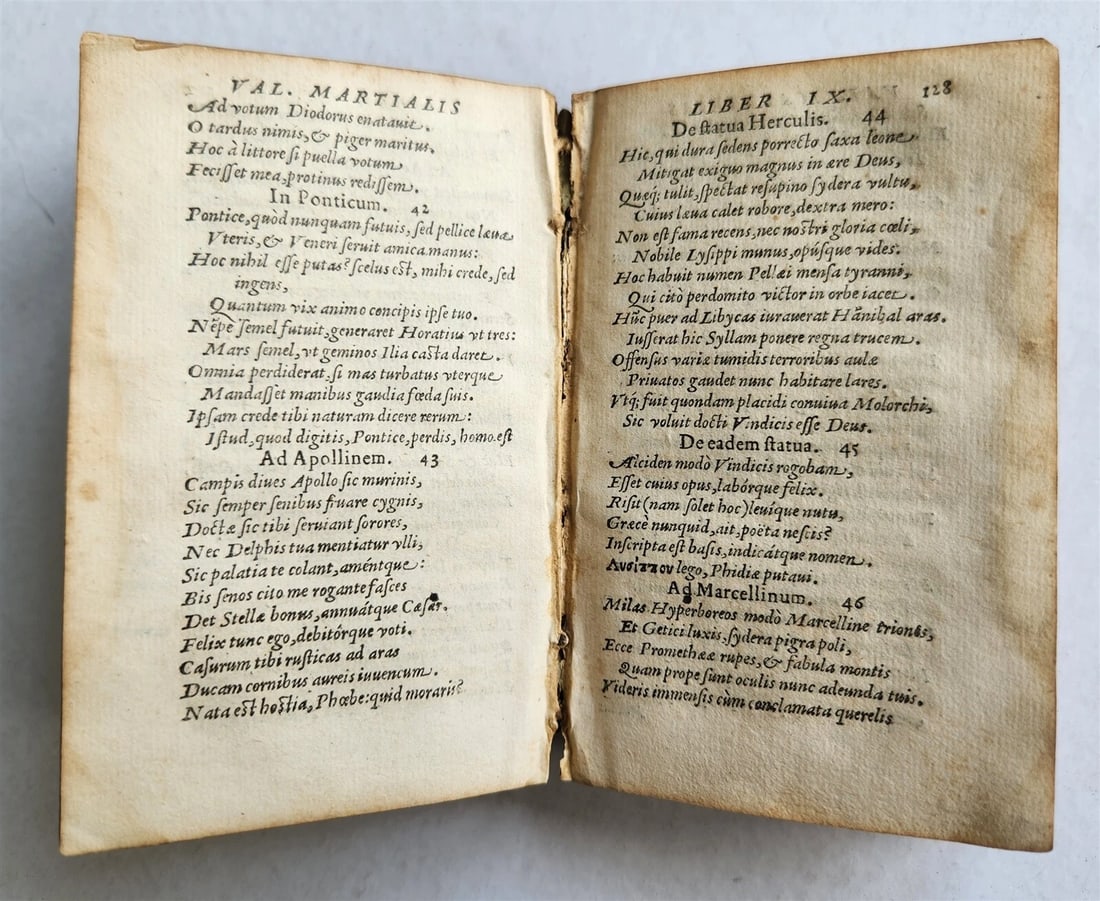 VAL. MARTIALIS
Ad votum Diodorus enatauit.
O tardus nimis, & piger maritus.
Hoc à littore si puella votum
Fecisset mea, protinus redissem.
In Ponticum. 42
Pontice, quòd nunquam futuis, sed pellice læua
Vteris, & Veneri seruit amica manus:
Hoc nihil esse putas? scelus est, mihi crede, sed
ingens,
Quantum vix animo concipis ipse tuo.
Nẽpe semel futuit, generaret Horatius vt tres:
Mars semel, vt geminos Ilia casta daret.
Omnia perdiderat, si mas turbatus vterque
Mandasset manibus gaudia fœda suis.
Ipsam crede tibi naturam dicere rerum:
Istud, quod digitis, Pontice, perdis, homo est
Ad Apollinem. 43
Campis diues Apollo sic murinis,
Sic semper senibus fruare cygnis,
Doctæ sic tibi seruiant sorores,
Nec Delphis tua mentiatur vlli,
Sic palatia te colant, améntque:
Bis senos cito me rogante fasces
Det Stellæ bonus, annuátque Cæsar.
Felix tunc ego, debitórque voti.
Casurum tibi rusticas ad aras
Ducam cornibus aureis iuuencum.
Nata est hostia, Phœbe: quid moraris?
LIBER IX. 128
De statua Herculis. 44
Hic, qui dura sedens porrecto saxa leone
Mitigat exiguo magnus in ære Deus,
Quæq; tulit, spectat resupino sydera vultu,
Cuius læua calet robore, dextra mero:
Non est fama recens, nec nostri gloria cœli,
Nobile Lysippi munus, opúsque vides.
Hoc habuit numen Pellæi mensa tyranni,
Qui citò perdomito victor in orbe iacet.
Hũc puer ad Libycas iurauerat Hãnibal aras.
Iusserat hic Syllam ponere regna trucem.
Offensus variæ tumidis terroribus aulæ
Priuatos gaudet nunc habitare lares.
Vtq; fuit quondam placidi conuiua Molorchi,
Sic voluit docti Vindicis esse Deus.
De eadem statua. 45
Alciden modò Vindicis rogobam,
Esset cuius opus, labórque felix.
Risit (nam solet hoc) leuíque nutu,
Græcè nunquid, ait, poëta nescis?
Inscripta est basis, indicátque nomen.
Λυσίππου lego, Phidiæ putaui.
Ad Marcellinum. 46
Milas Hyperboreos modò Marcelline triones,
Et Getici luxis, sydera pigra poli,
Ecce Promethææ rupes, & fabula montis
Quam prope sunt oculis nunc adeunda tuis.
Videris immensis cùm conclamata querelis